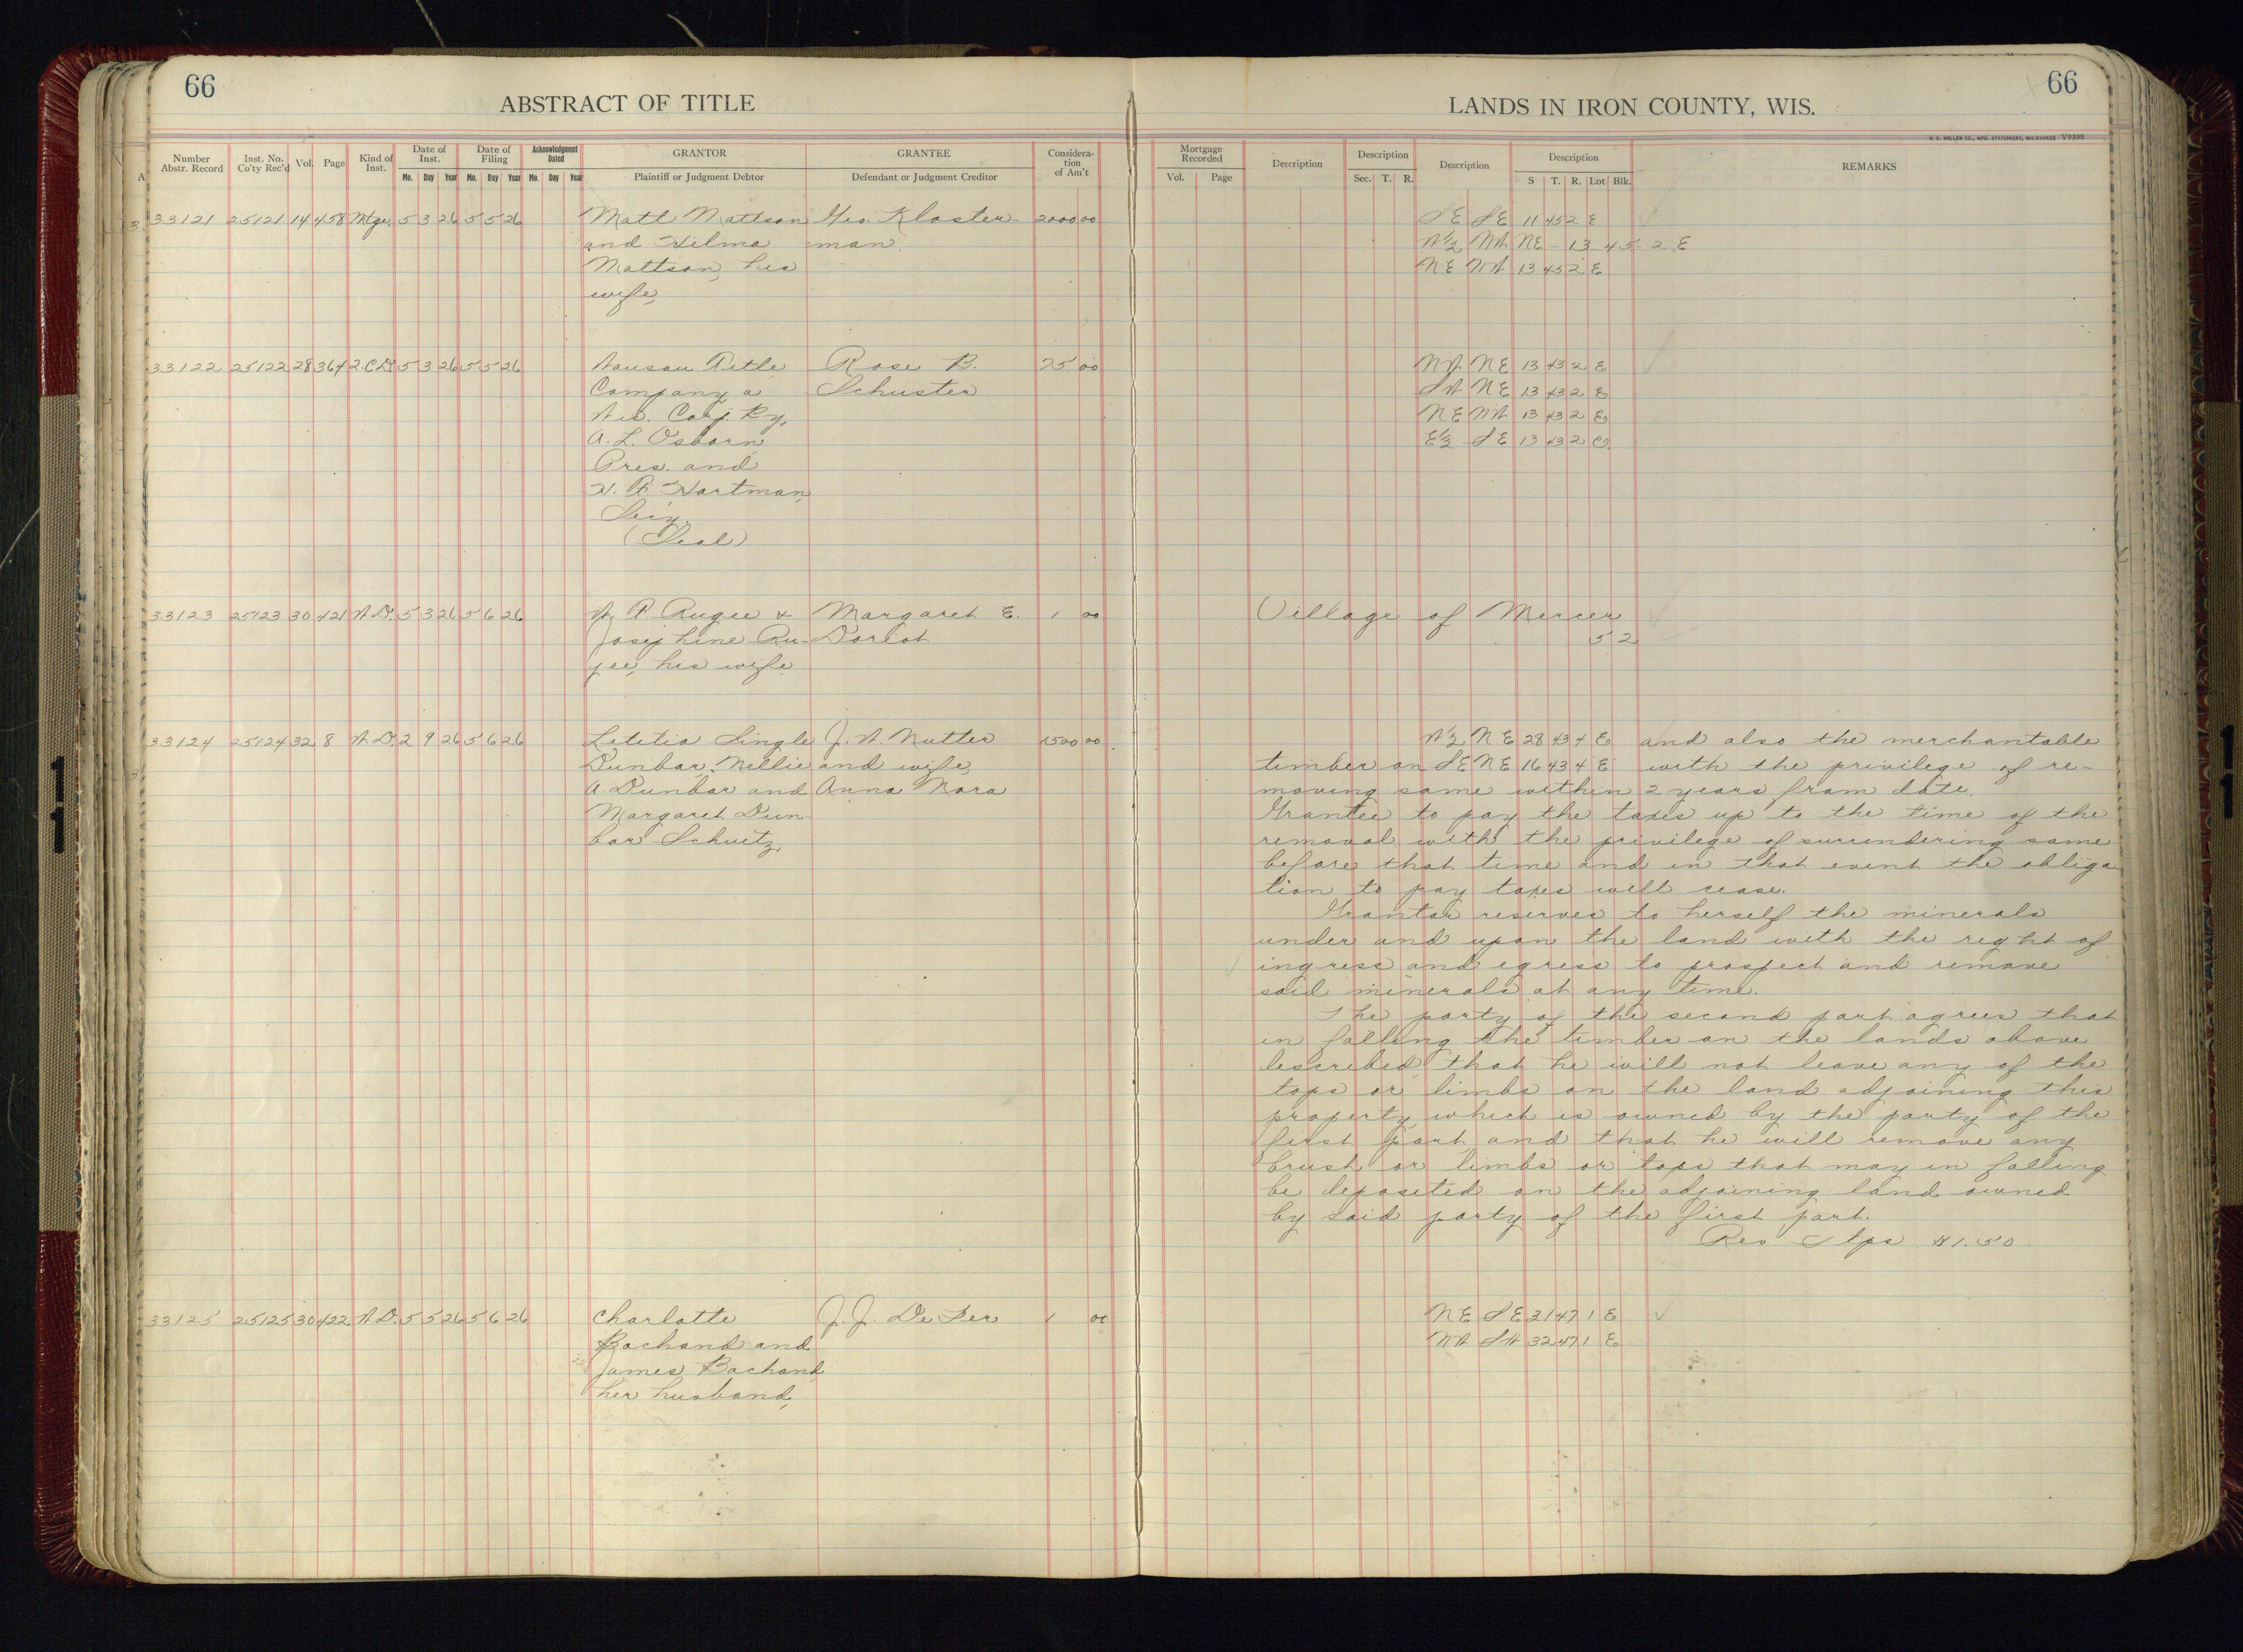 66
ABSTRACT OF TITLE
66
LANDS IN IRON COUNTY, WIS.
H. C. MILLER CO., MFG. STATIONERS, MILWAUKEE Y9398
Number Abstr. Record Inst. No. Co'ty Rec'd Vol. Page Kind of Inst. Date of Inst. Date of Filing Acknowledgment Dated GRANTOR GRANTEE Considera-tion of Am't Mortgage Recorded Description Description Description Description REMARKS
Mo. Day Year Mo. Day Year Mo. Day Year Plaintiff or Judgment Debtor Defendant or Judgment Creditor Vol. Page Sec. T. R. S T. R. Lot Blk.
33121 25121 14 458 Mtge. 5 3 26 5 5 26 Matt Mattson Geo. Kloster- 2000 00 SE SE 11 45 2 E
and Hilma man. W½ NW NE - 13 45 2 E
Mattson, his NE NW 13 45 2 E
wife,
33122 25122 28 364 2.C.D. 5 3 26 5 5 26 Wausau Title Rose B. 75 00 NW NE 13 43 2 E
Company a Schuster SW NE 13 43 2 E
Wis. Corp. By, NE NW 13 43 2 E
A. L. Osborn, E½ SE 13 43 2 E
Pres. and
H. F. Hartman,
Secy.
(Seal)
33123 25123 30 421 W.D. 5 3 26 5 6 26 W. F. Rugee & Margaret E. 1 00 Village of Mercer
Josephine Ru- 5 2
gee, his wife,
33124 25124 32 8 W.D. 2 9 26 5 6 26 Letitia Single J. W. Nutter 1500 00 W½ NE 28 43 4 E and also the merchantable
Dunbar, Nellie and wife, timber on SE NE 16 43 4 E with the privilege of re-
A. Dunbar and Anna Nora moving same within 2 years from date.
Margaret Dun Grantee to pay the taxes up to the time of the
bar Schuitz, removal with the privilege of surrundering same
before that time and in that event the obliga
tion to pay taxes will cease.
Grantor reserves to herself the minerals
under and upon the land with the right of
ingress and egress to prospect and remove
said minerals at any time.
The party of the second part agrees that
in falling the timber on the lands above
described that he will not leave any of the
tops or limbs on the land adjoining this
property, which is owned by the party of the
first part, and that he will remove any
brush or limbs or tops that may in falling
be deposited on the adjoining land owned
by said party of the first part.
Rev Stps $1.50
33125 25125 30 422 W.D. 5 5 26 5 6 26 Charlotte J. J. De Fer 1 00 NE SE 31 47 1 E
Bachand and NW SW 32 47 1 E
James Bachand
her husband,